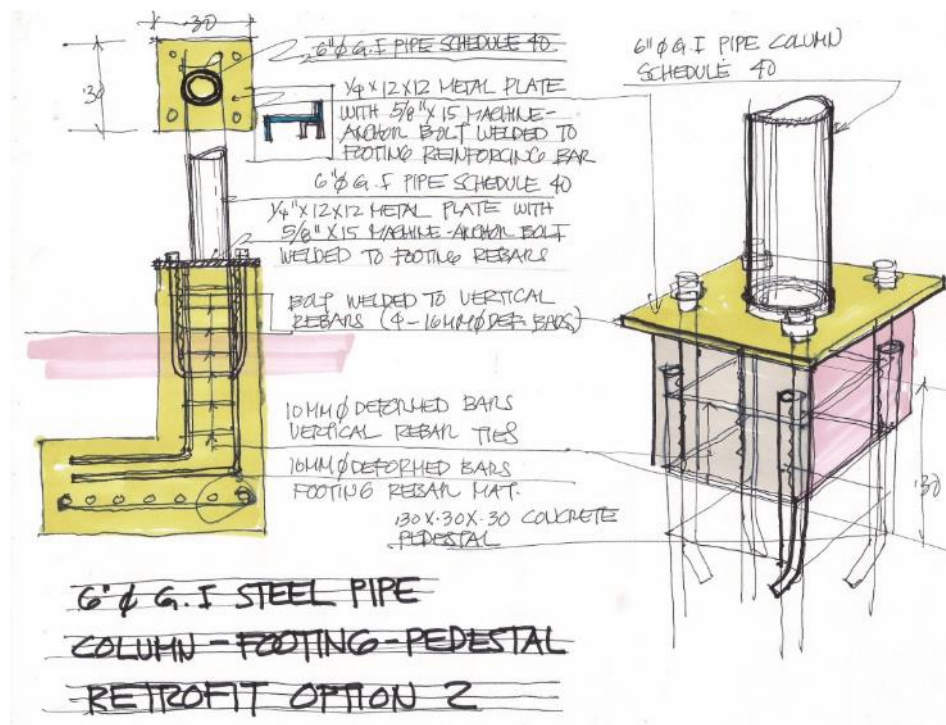 .30
.30
6"Ø G.I PIPE SCHEDULE 40
1/4 X 12 X 12 METAL PLATE
WITH 5/8" X 15 MACHINE-
ANCHOR BOLT WELDED TO
FOOTING REINFORCING BAR
6"Ø G.I PIPE SCHEDULE 40
1/4" X 12 X 12 METAL PLATE WITH
5/8" X 15 MACHINE-ANCHOR BOLT
WELDED TO FOOTING REBARS
BOLT WELDED TO VERTICAL
REBARS (4-16MMØ DEF. BARS)
10MMØ DEFORMED BARS
VERTICAL REBAR TIES
16MMØ DEFORMED BARS
FOOTING REBAR MAT.
.30 X .30 X .30 CONCRETE
PEDESTAL
6"Ø G.I PIPE COLUMN
SCHEDULE 40
.30
6"Ø G.I STEEL PIPE
COLUMN-FOOTING-PEDESTAL
RETROFIT OPTION 2